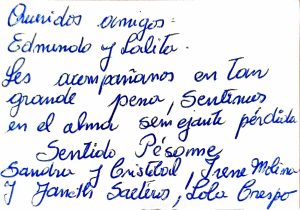 Queridos amigos:
Edmundo y Lolita.
Les acompañamos en tan
grande pena, sentimos
en el alma semejante pérdida
Sentido Pésame
Sandra y Cristobal, Irene Molina
y Janeth Saeteros, Lola Crespo